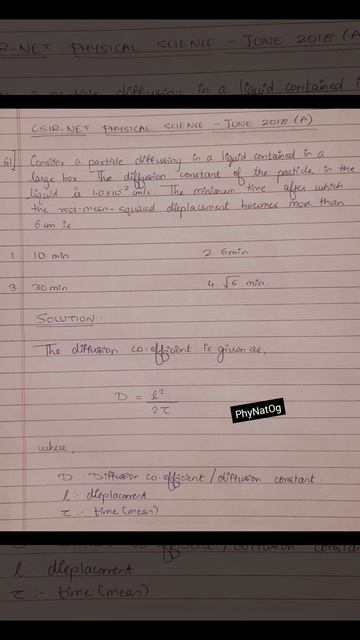 R-NET PHYSICAL SCIENCE - JUNE 2018 (A
CSIR-NET PHYSICAL SCIENCE - JUNE 2018 (A)
61] Consider a particle diffusing in a liquid contained in a
large box. The diffusion constant of the particle in the
liquid is 1.0x10⁻² cm²/s. The minimum time after which
the root-mean-squared displacement becomes more than
6 cm is
1 10 min 2 6min
3 30 min 4 √6 min.
SOLUTION.
The diffusion co-efficient is given as,
D = l²/2τ
PhyNatOg
where,
D :- Diffusion co-efficient / diffusion constant.
l :- displacement
τ :- time (mean)
l :- displacement
τ :- time (mean)